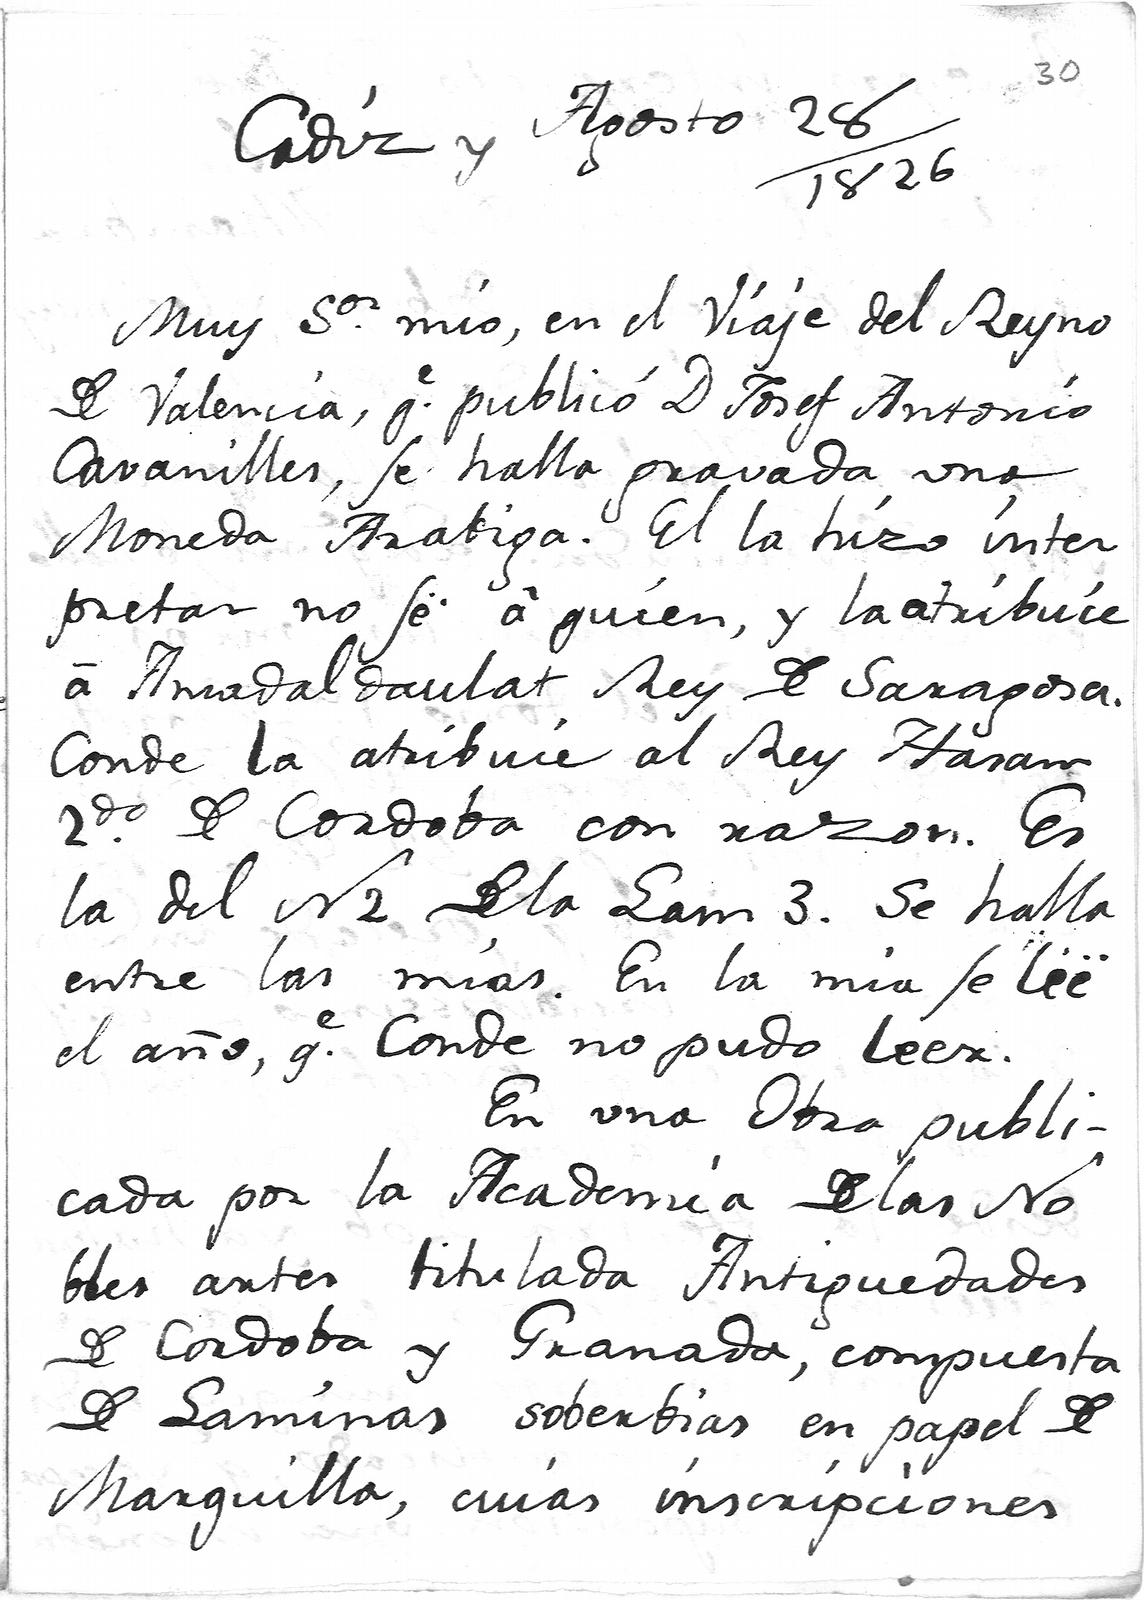 30
Cádiz y Agosto 28
1826
Muy Sor. mio, en el Viaje del Reyno
De Valencia, qe. publicó D Josef Antonio
Cavanilles, se halla gravada una
Moneda Arabiga. El la hizo inter
pretar no së â quien, y la atribuie
ā Amadaldaulat Rey De Saragosa.
Conde la atribuie al Rey Hasam
2do. De Cordoba con razon. Es
la del N 2 De la Lam 3. Se halla
entre las mias. En la mia se lëë
el año, qe. Conde no pudo leer.
En una Obra publi-
cada por la Academia De las No
bles artes titulada Antiguedades
De Cordoba y Granada, compuesta
De Laminas soberbias en papel De
Marquilla, cuias inscripciones